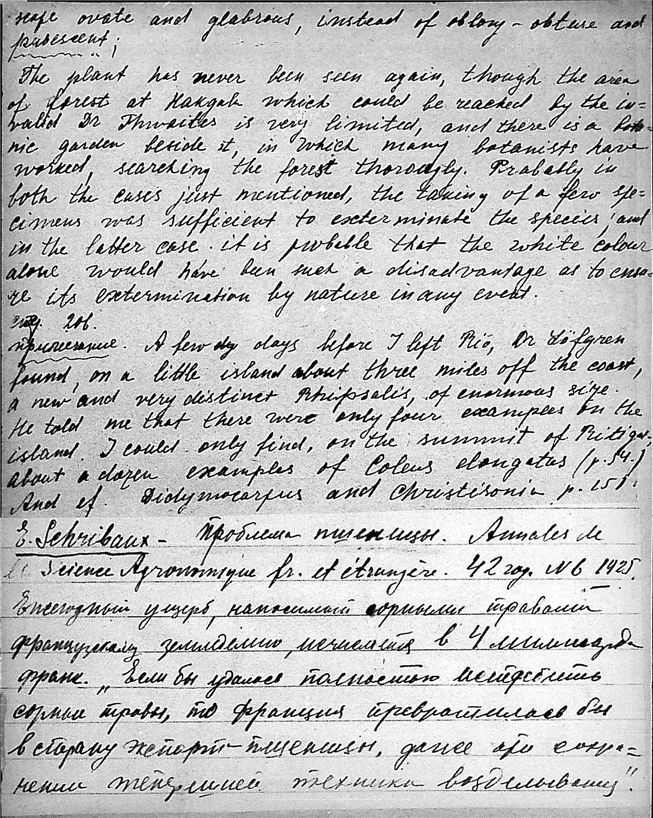 more ovate and glabrous, instead of oblong-obtuse and
pubescent;
The plant has never been seen again, though the area
of forest at Hakgala which could be reached by the in=
valid Dr Thwaites is very limited, and there is a bota=
nic garden beside it, in which many botanists have
worked, searching the forest thorougly. Probably in
both the cases just mentioned, the taking of a few spe=
cimens was sufficient to exterminate the species, and
in the latter case it is probable that the white colour
alone would have been such a disadvantage as to ensu=
re its extermination by nature in any event.
стр. 206.
примечание A few days before I left Rio, Dr Löfgren
found, on a little island about three miles off the coast,
a new and very distinct Rhipsalis, of enormous size.
He told me that there were only four examples on the
island. I could only find, on the summit of Ritigala
about a dozen examples of Coleus elongatus (p. 54.)
And cf. Didymocarpus and Christisonia p. 151.
E. Schribaux - Проблема пшеницы. Annales de
la Science Agronomique fr. et étrangère. 42 год. N6 1925.
Ежегодный ущерб, наносимый сорными травами
французскому земледелию, исчисляется в 4 миллиарда
франк. „Если бы удалось полностью истребить
сорные травы, то Франция превратилась бы
в страну экспорт пшеницы, даже при сохра=
нении теперешней техники возделывания".